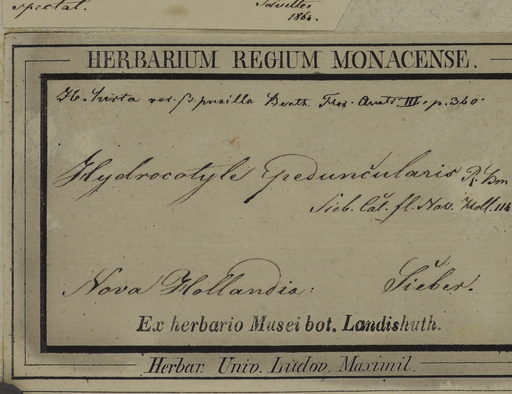 spectat.
1864.
HERBARIUM REGIUM MONACENSE.
H. hirta var. β. pusilla Benth Flor. Austr. III. p. 340.
Hydrocotyle peduncularis R. Br
Sieb. Cat. fl. Nov. Holl. 114
Nova Hollandia: Sieber.
Ex herbario Musei bot. Landishuth.
Herbar. Univ. Ludov. Maximil.